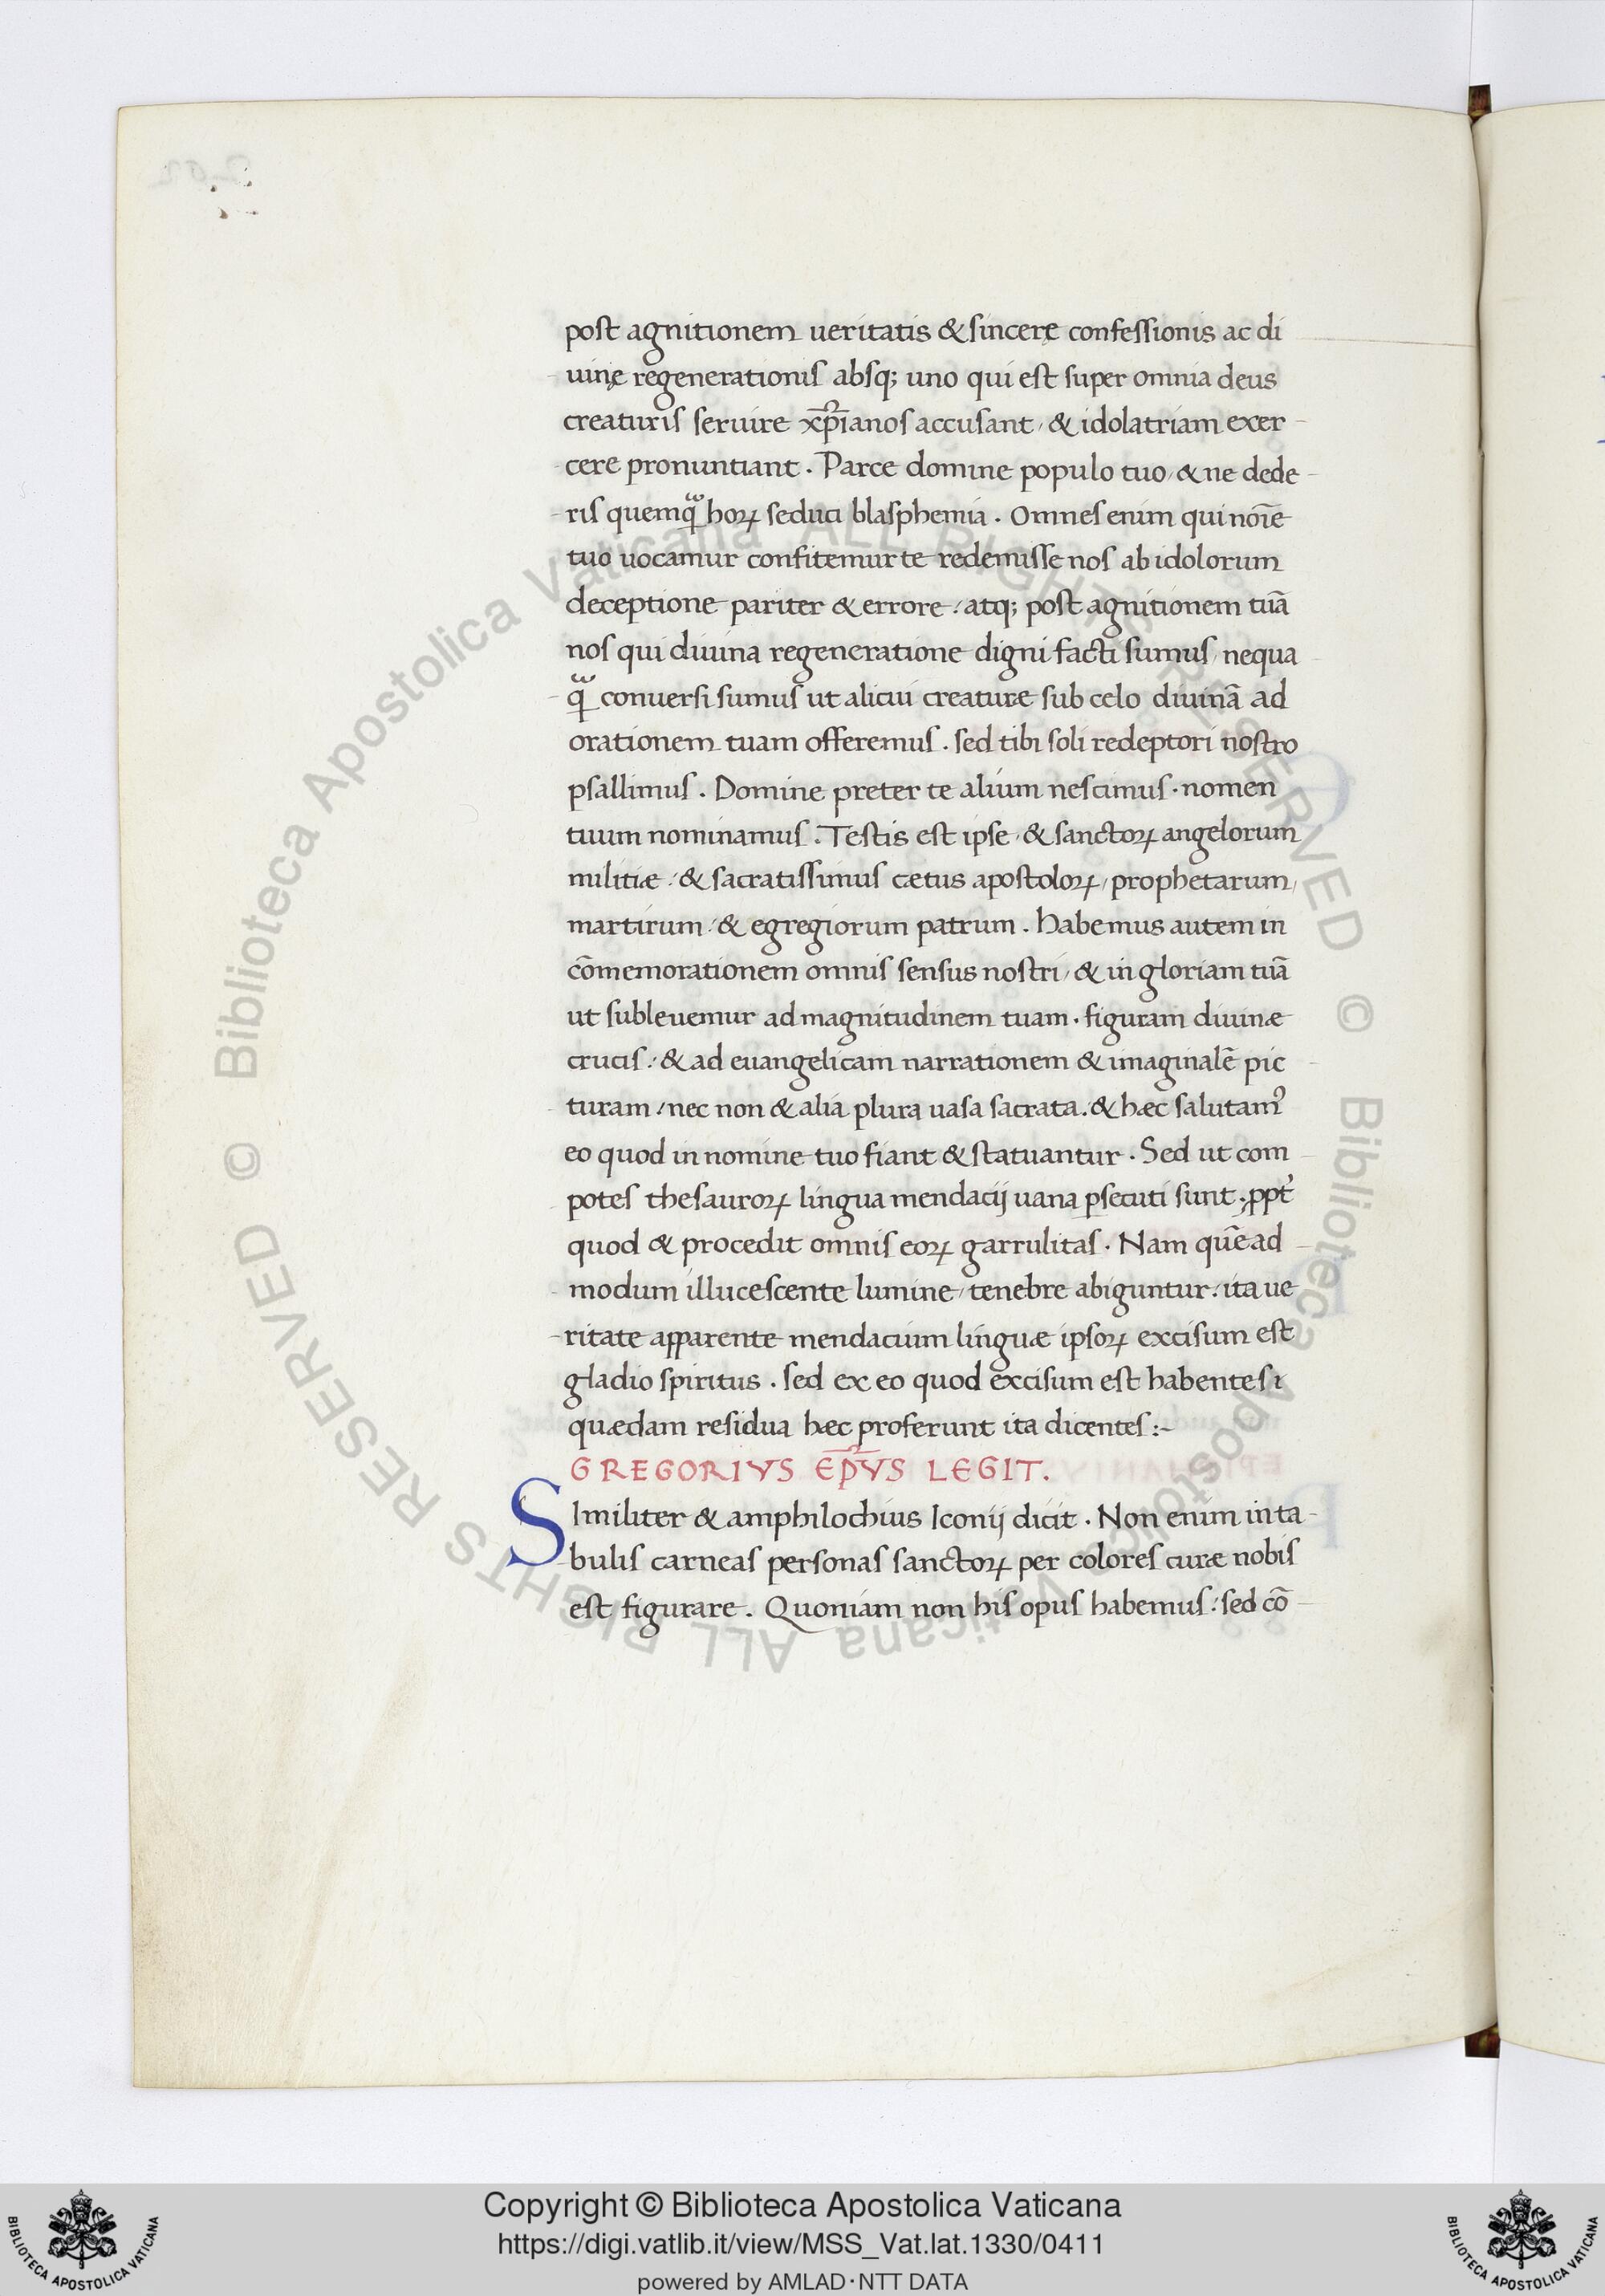 post agnitionem ueritatis & sincerę confessionis ac di
uinę regenerationis absq; uno qui est super omnia deus
creaturis seruire xp̄ianos accusant, & idolatriam exer
cere pronuntiant. Parce domine populo tuo, & ne dede
ris quemq̃ horꝝ seduci blasphemia. Omnes enim qui noīe
tuo uocamur confitemur te redemisse nos ab idolorum
deceptione pariter & errore: atq; post agnitionem tuā
nos qui diuina regeneratione digni facti sumus, nequa
q̃ conuersi sumus ut alicui creaturæ sub celo diuinā ad
orationem tuam offeremus. sed tibi soli redeptori nostro
psallimus. Domine preter te alium nescimus. nomen
tuum nominamus. Testis est ipse, & sanctorꝝ angelorum
militiæ: & sacratissimus cætus apostolorꝝ, prophetarum,
martirum: & egregiorum patrum. Habemus autem in
cōmemorationem omnis sensus nostri, & in gloriam tuā
ut subleuemur ad magnitudinem tuam. figuram diuinæ
crucis: & ad euangelicam narrationem & imaginalē pic
turam, nec non & alia plura uasa sacrata. & hæc salutamꝰ
eo quod in nomine tuo fiant & statuantur. Sed ut com
potes thesaurorꝝ lingua mendacij uana ꝑsecuti sunt. ꝓpt̕
quod & procedit omnis eorꝝ garrulitas. Nam quēad
modum illucescente lumine, tenebre abiguntur: ita ue
ritate apparente mendacium linguæ ipsorꝝ excisum est
gladio spiritus. sed ex eo quod excisum est habentes
quædam residua hæc proferunt ita dicentes:-
GREGORIVS EP̄VS LEGIT.
SImiliter & amphilochius Iconij dicit. Non enim in ta
bulis carneas personas sanctorꝝ per colores curæ nobis
est figurare. Quoniam non his opus habemus: sed cō
© Biblioteca Apostolica Vaticana ALL RIGHTS RESERVED
© Biblioteca Apostolica Vaticana ALL RIGHTS RESERVED
Copyright © Biblioteca Apostolica Vaticana
https://digi.vatlib.it/view/MSS_Vat.lat.1330/0411
powered by AMLAD·NTT DATA
BIBLIOTECA APOSTOLICA VATICANA
BIBLIOTECA APOSTOLICA VATICANA